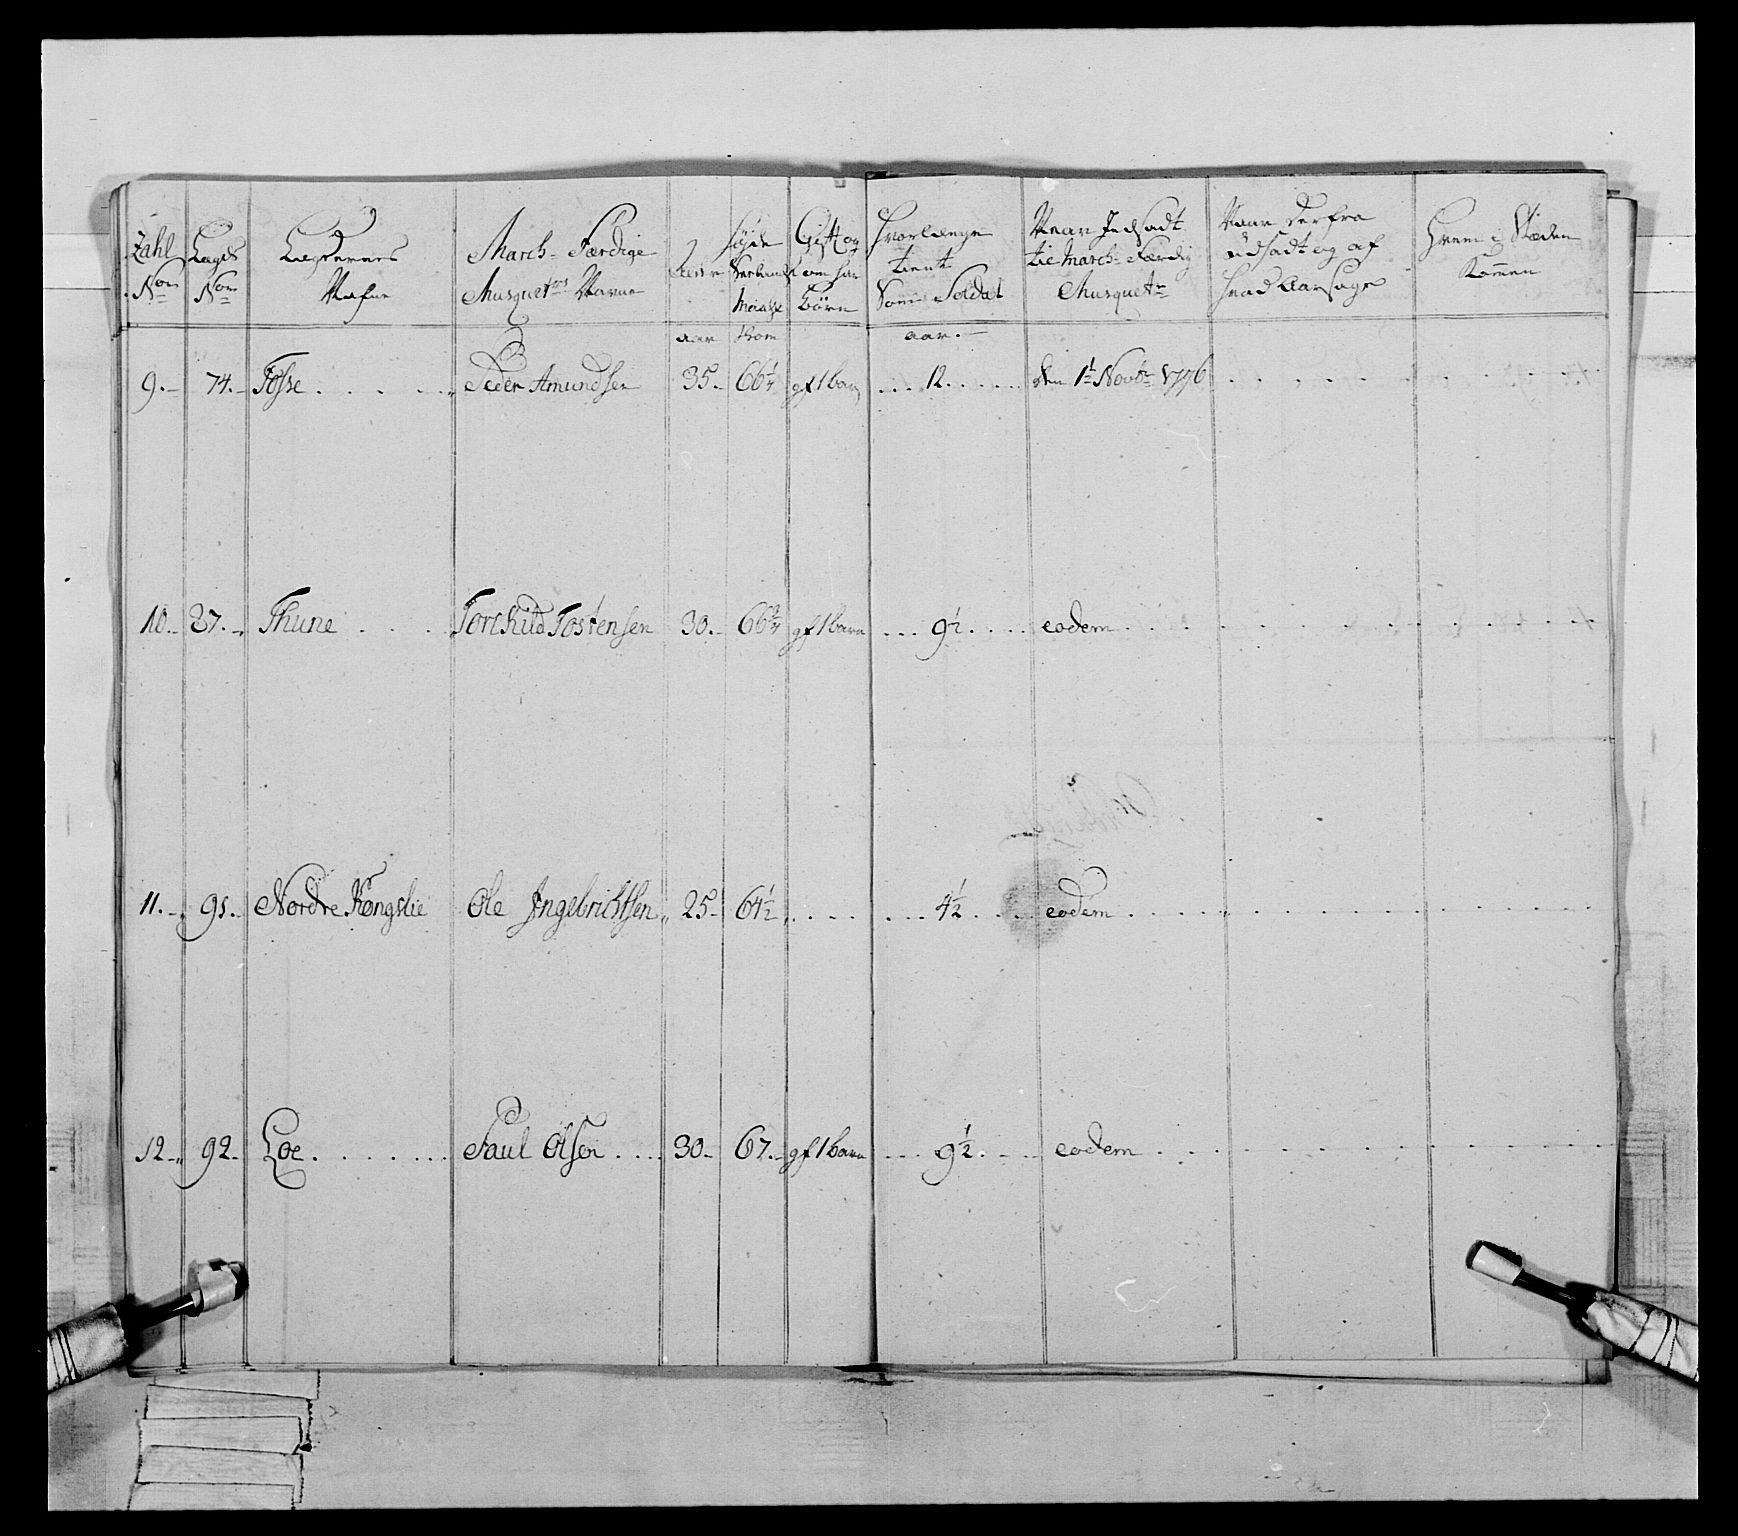 Zahl Nom
Lægds Nom
Lægdernes Nafne
March-Færdige Musquetrs Navne
Høyde
Gift og om har Børn
Hvorlænge tient Som Soldat
Naar Indsadt til March-Færdig Musquetr
Naar derfra udsadt og af hvad Aarsage
Hvem i Stæden Kommen
aar Tom aar.
9. 74. Fosse Peder Amundsen 35. 66¼ gf 1 barn 12. den 1t Novbr 1776
10. 37. Thune Torchild Tostensen 30. 66¾ gf 1 barn 9½ eodem
11. 91. Nordre Kongslie Ole Ingebrichtsen 25 61½ 4½ eodem
12. 92. Loe Paul Olsen 30. 67. gf 1 barn 9½ eodem